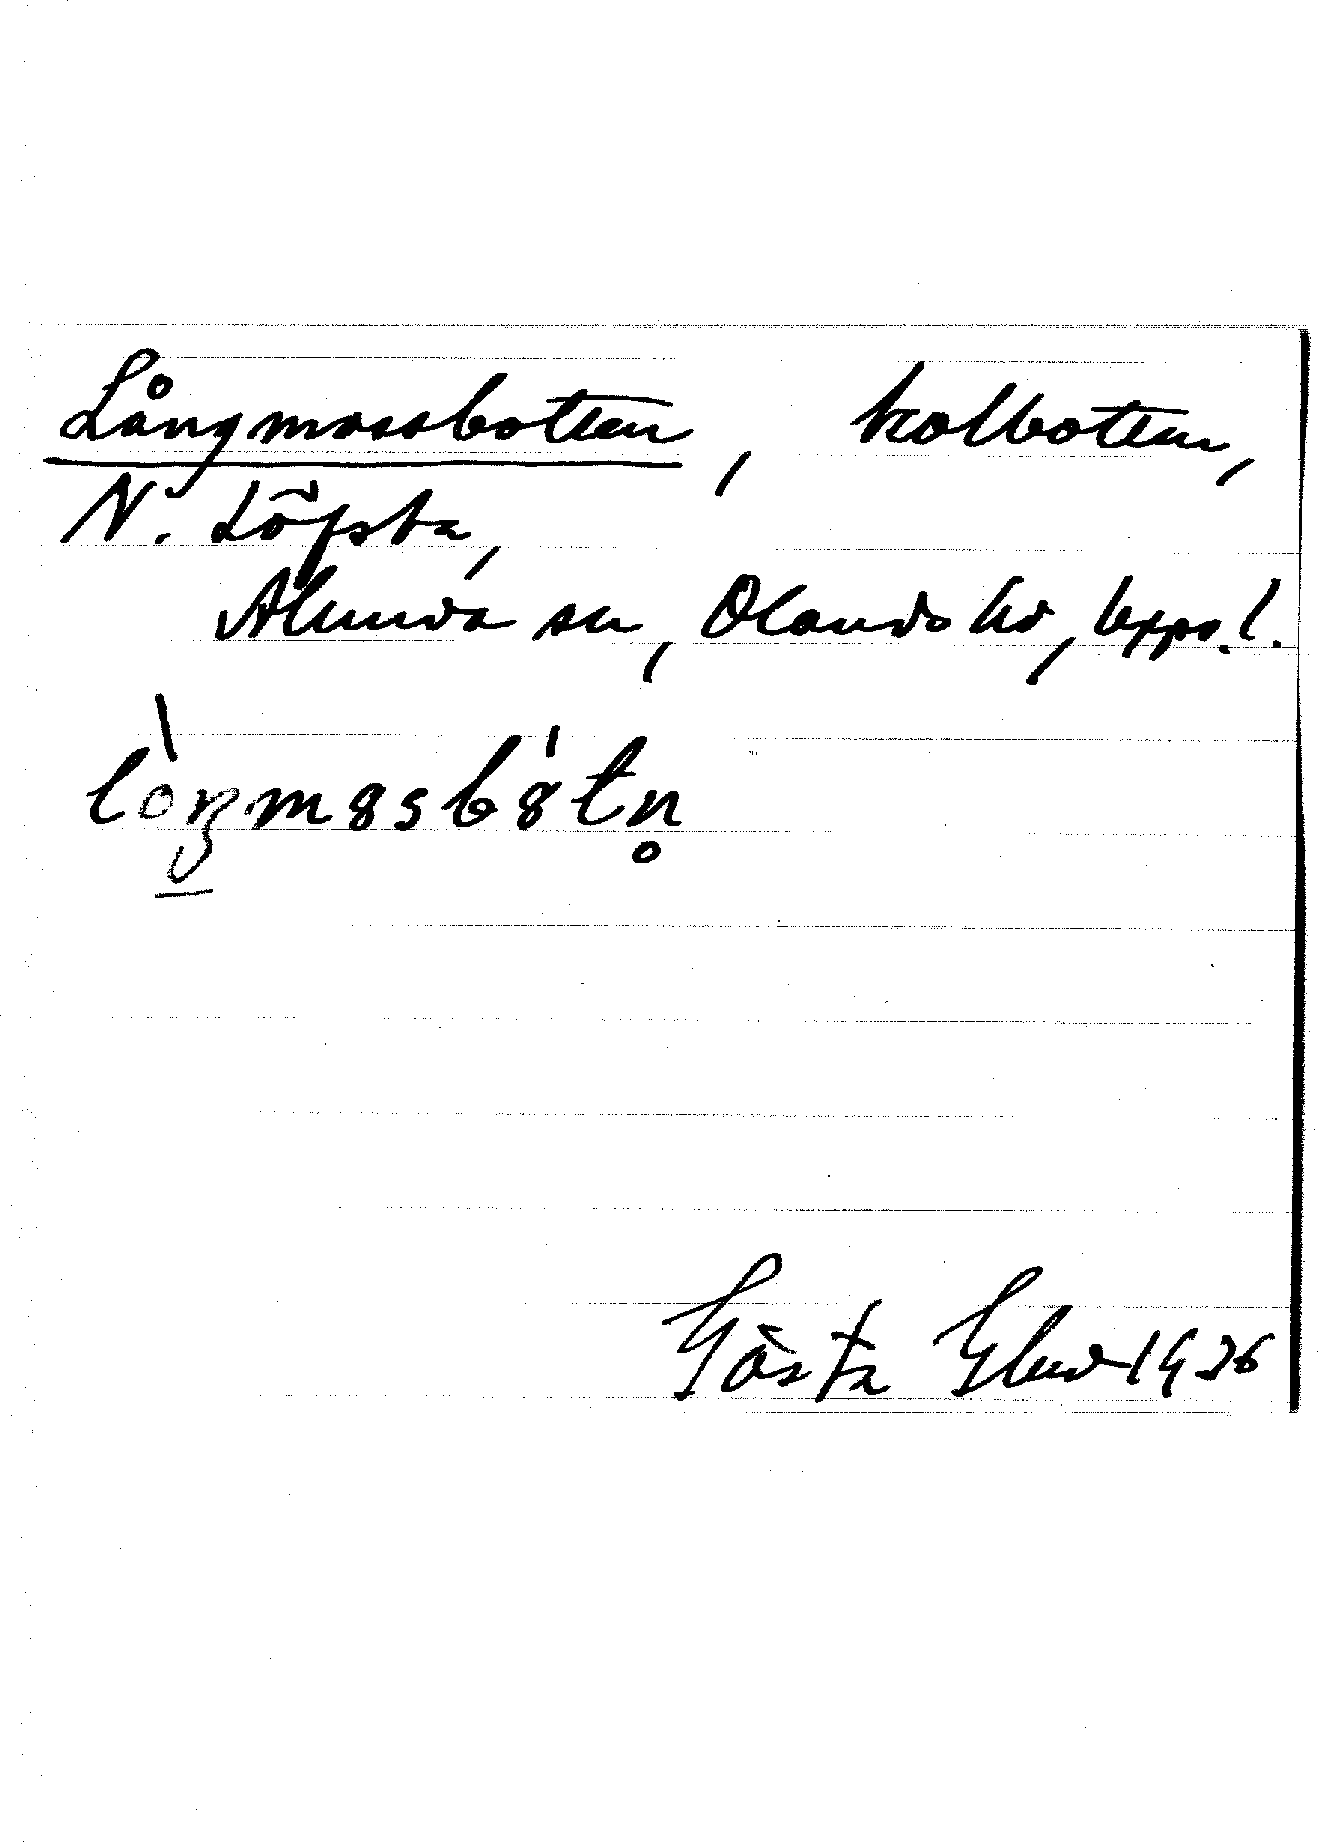 Långmossbotten, kolbotten,
N. Löfsta,
Alunda sn, Olands hd, Upps. l.
lòŋmɞsbɞ́tn̥
Gösta Elund 1936